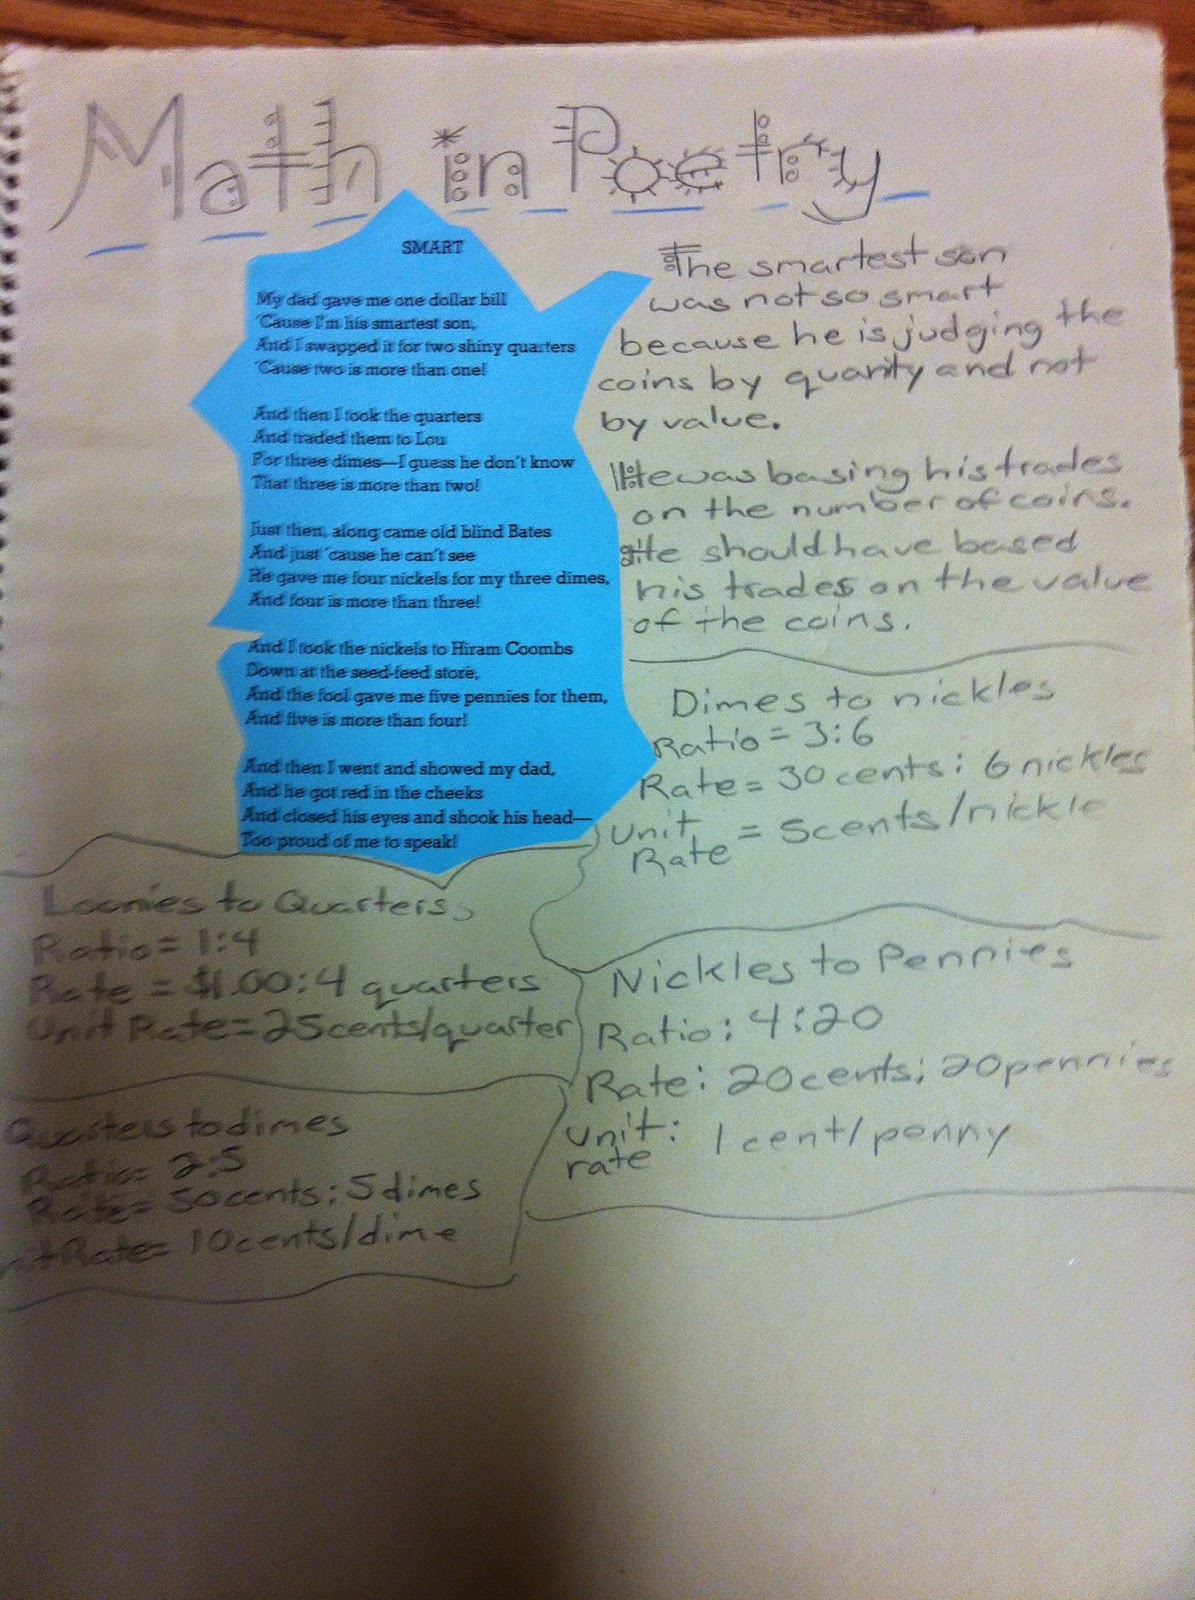 Math in Poetry
SMART
My dad gave me one dollar bill
'Cause I'm his smartest son,
And I swapped it for two shiny quarters
'Cause two is more than one!
And then I took the quarters
And traded them to Lou
For three dimes—I guess he don't know
That three is more than two!
Just then, along came old blind Bates
And just 'cause he can't see
He gave me four nickels for my three dimes,
And four is more than three!
And I took the nickels to Hiram Coombs
Down at the seed-feed store,
And the fool gave me five pennies for them,
And five is more than four!
And then I went and showed my dad,
And he got red in the cheeks
And closed his eyes and shook his head—
Too proud of me to speak!
The smartest son
was not so smart
because he is judging the
coins by quanity and not
by value.
He was basing his trades
on the number of coins.
He should have based
his trades on the value
of the coins.
Dimes to nickles
Ratio = 3:6
Rate = 30 cents : 6 nickles
Unit Rate = 5cents/nickle
Loonies to Quarters
Ratio = 1:4
Rate = $1.00 : 4 quarters
Unit Rate = 25cents/quarter
Nickles to Pennies
Ratio: 4:20
Rate: 20cents : 20pennies
Unit rate : 1 cent/penny
Quarters to dimes
Ratio = 2:5
Rate = 50cents : 5 dimes
Rate = 10cents/dime